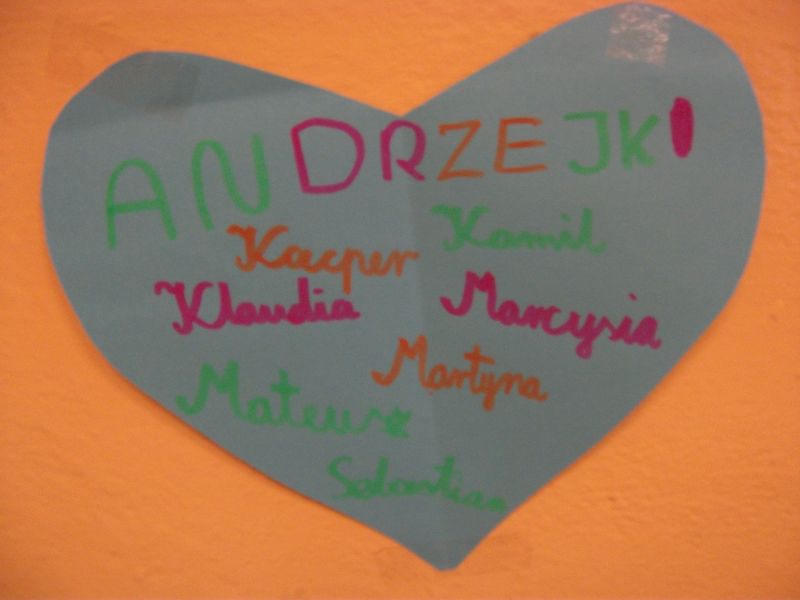 ANDRZEJKI
Kacper Kamil
Klaudia Marcysia
Martyna
Mateusz
Sebastian